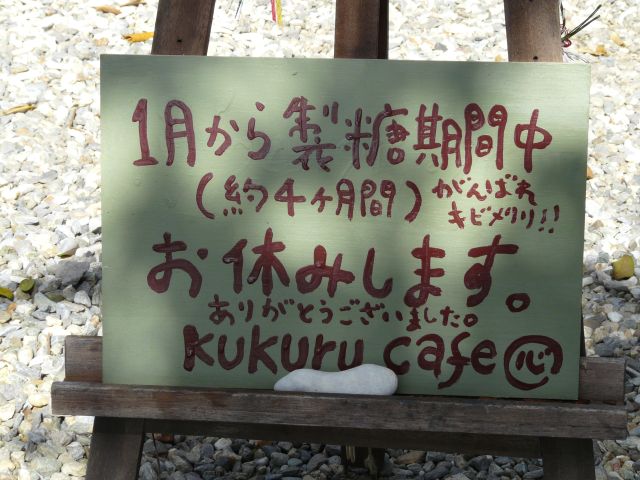 1月から製糖期間中
(約4ヶ月間)
がんばれ
キビメリリ!!
お休みします。
ありがとうございました。
kukuru cafe 心